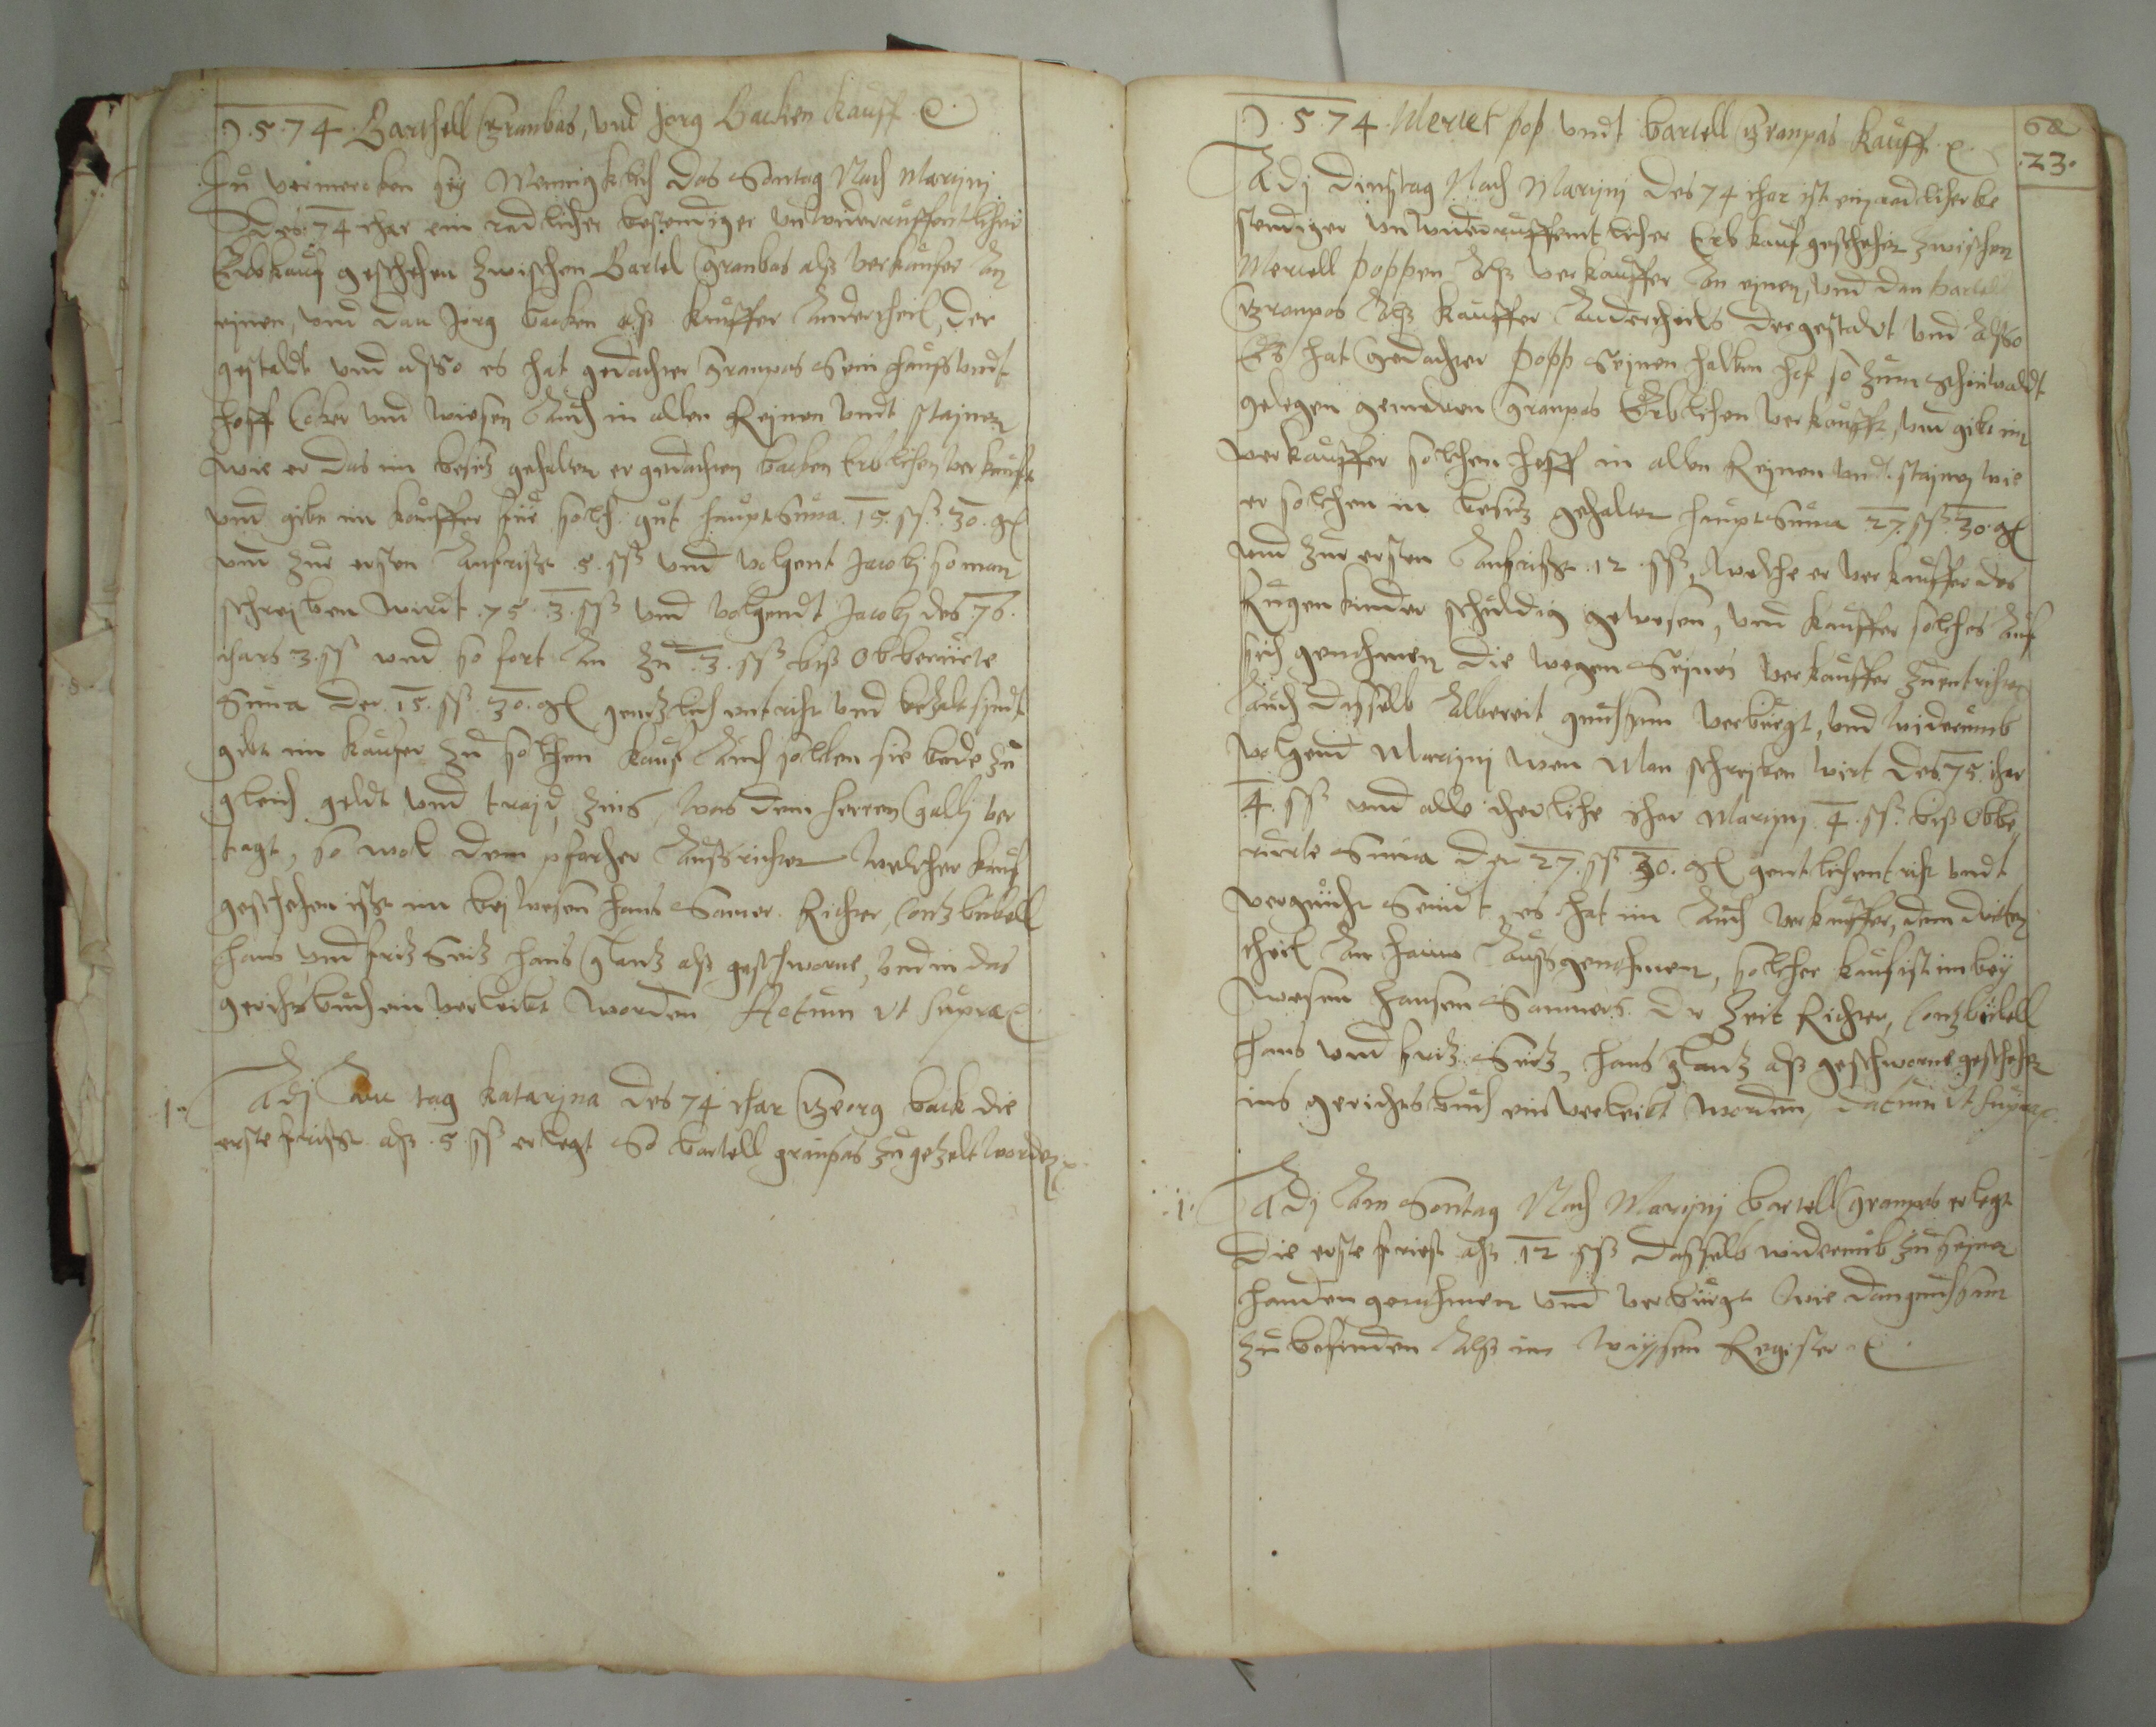 1.5.74. Barthell Granbas, und Jorg Backen Kauff
Zu vermercken sey Menigklich das Sontag Nach Martinj
des 74 ihar ein redlicher bestendiger unwiderruffentlicher
Erbkauf geschehen zwischen Bartel Granbas alß Verkaufer An
einen, und dan Jorg backen alß Kauffer Andertheil, der
gestaldt und also es hat gedachter Granpas Sein hauß undt
hoff Ecker und wiesen Auch in allen Reinen undt stainen
wie er das im besitz gehalten er gedachten backen Erblichen verkauft
und gibt im Kauffer für solch gut haupt Suma 15. ß 30. gl
und zur ersten Anfrist 5. ß und volgent Jacobj so man
schreiben wirdt .75. 3. ß und volgendt Jacobj des 76.
ihars 3. ß und so fort An zu 3. ß biß obberürte
Suma der 15. ß 30. gl gentzlich entricht und bezalt sindt
gibt im Kaufer zu solchen Kauf Auch sollen sie bede zu
gleich geldt und traid zins, was dem herren Gallj ver
tagt, so wol dem pfarher Außrichten welcher Kauf
geschehen ist im beywesen hans Samer Richter, Contz bübell
hans und fritz Seitz hans Glantz alß geschworne, und in das
gerichtsbuch einverleibt worden Actum ut supra
1. Adj Am tag Katarina des 74 ihar Georg back die
erste frist alß 5 ß erlegt So bartell granpas zugezelt worden
1.5.74 Mertet pop undt bartell Granpas Kauff
68
23.
Adj dinstag Nach Martinj des 74 ihar ist ein redlicher be
stendiger unwiderruffentlicher Erbkauf geschehen zwischen
Mertell poppen Alß verkauffer An einen, und dan bartell
Granpas Alß Kauffer Andertheils dergestaldt und Also
Es hat Gedachter popp Seinen halben hof so zum schönwaldt
gelegen gemelten Granpas Erblichen verkaufft, und gibt im
verkauffer solchen hoff in allen Reinen und stainen wie
er solchen in besitz gehalten haupt Suma 27. ß 30. gl
und zur ersten Anfrist 12. ß, welche er verkauffer des
Kugen kinder schuldig gewesen, und Kauffer solches Auf
sich genohmen die wegen Seines verkauffer zuentrichten
Auch dasselb Albereit gnuhsam verbürgt, und widerumb
volgend Martinj wen Man schreiben wirt des 75. ihar
4. ß und alle iherliche ihar Martinj 4. ß. biß obbe
rürte Suma der 27. ß 30. gl gentlich entricht undt
vergnücht Seindt, es hat im Auch verkauffer, den driten
theil An Außgenohmen, solcher Kauf ist im bey
wesen hansen Samers der Zeit Richter, Contz bübell
hans und fritz Seitz, hans Glantz alß geschworne geschehen
ins gerichtsbuch einverleibt worden, datum ut supra
1. Adj Am Sontag Nach Martinj bartell Granpas erlegt
die erste frist alß 12 ß dasselb widerumb zu seinen
handen genohmen und verbürgt wie dan gnuhsam
zubefinden Alß im Waysen Register